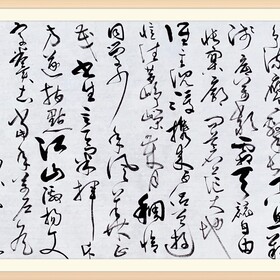 浅底万类霜天竞自由
怅寥廓问苍茫大地
谁主沉浮携来百侣曾游
忆往昔峥嵘岁月稠恰
同学少年风华正
茂书生意气挥斥
方遒指点江山激扬文
字粪土当年万户侯